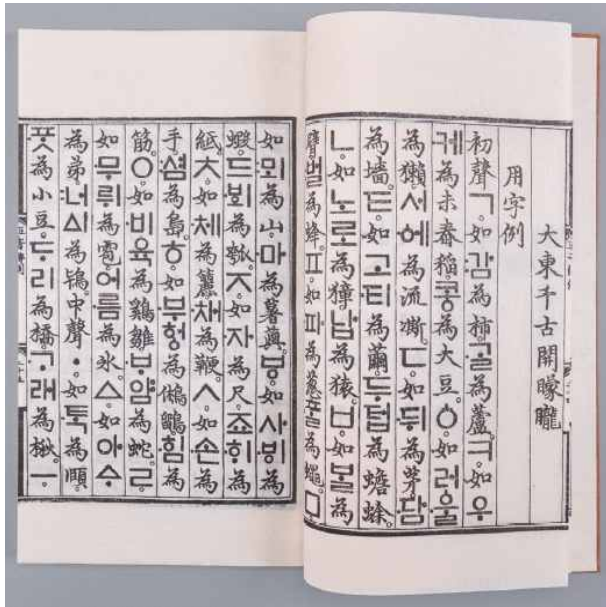 大東千古開曚曨
用字例
初聲ㄱ。如감為柿。ᄀᆞᆯ為蘆。ㅋ。如우
케為未舂稻。콩為大豆。ㆁ。如러ᅌᅮᆯ
為獺。서ᅌᅦ為流凘。ㄷ。如뒤為茅。담
為墻。ㅌ。如고티為繭。두텁為蟾蜍。
ㄴ。如노로為獐。납為猿。ㅂ。如ᄇᆞᆯ為
臂。벌為蜂。ㅍ。如파為葱。ᄑᆞᆯ為蠅。ㅁ
如뫼為山。마為薯藇。ㅸ。如사ᄫᅵ為
蝦。드ᄫᅴ為瓠。ㅈ。如자為尺。죠ᄒᆡ為
紙。ㅊ。如체為籭。채為鞭。ㅅ。如손為
手。셤為島。ㅎ。如부헝為鵂鶹。힘為
筋。ㅇ。如비육為鷄雛。ᄇᆞ얌為蛇。ㄹ。
如무뤼為雹。어름為氷。ㅿ。如아ᅀᆞ
為弟。너ᅀᅵ為鴇。中聲ㆍ。如ᄐᆞᆨ為頤。
ᄑᆞᆺ為小豆。ᄃᆞ리為橋。ᄀᆞ래為楸。ㅡ。